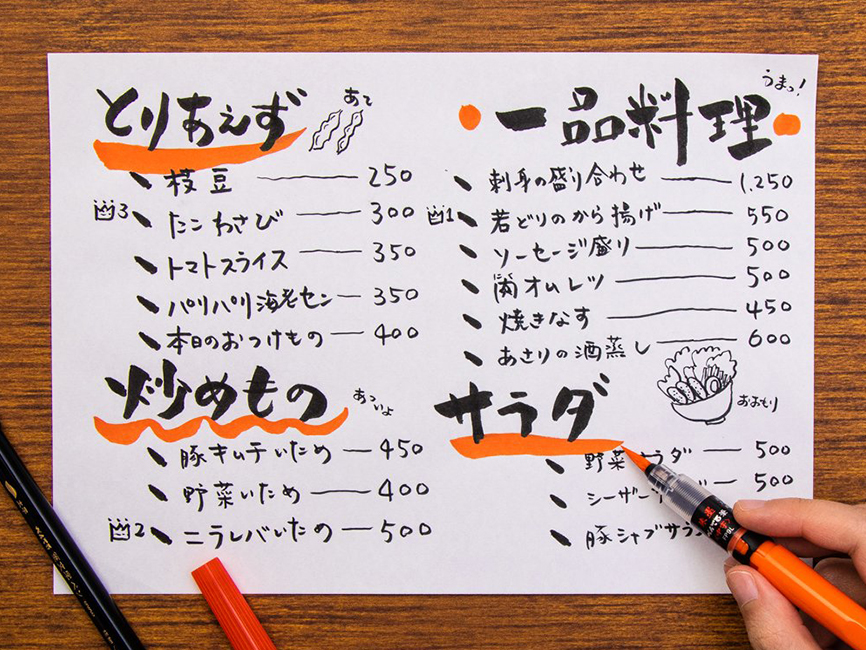 とりあえず
あて
枝豆 250
3 たこわさび 300
トマトスライス 350
パリパリ海老セン 350
本日のおつけもの 400
炒めもの
あついよ
豚キムチいため 450
野菜いため 400
2 ニラレバいため 500
一品料理
うまっ!
刺身の盛り合わせ 1,250
1 若どりのから揚げ 550
ソーセージ盛り 500
にく
肉オムレツ 500
焼きなす 450
あさりの酒蒸し 600
サラダ
おおもり
野菜サラダ 500
シーザー 500
豚シャブサラ